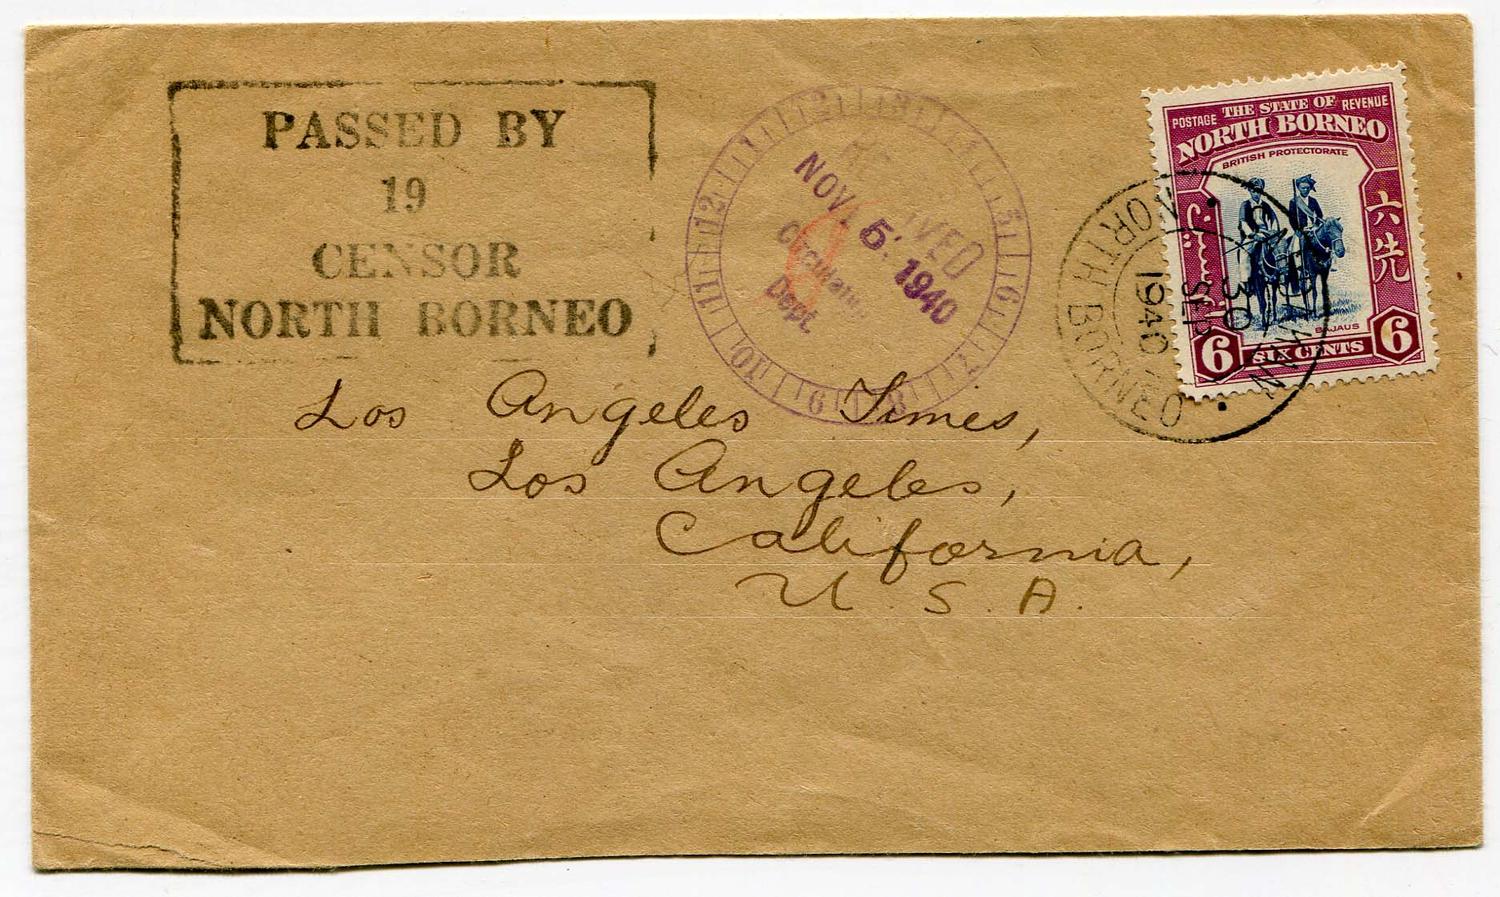 PASSED BY
19
CENSOR
NORTH BORNEO
NOV 5 1940
Circulation
Dept.
12 1 2 3 4 5 6 7 8 9 10 11
POSTAGE THE STATE OF REVENUE
NORTH BORNEO
BRITISH PROTECTORATE
六先
BAJAUS
6 SIX CENTS 6
30
SEP
1940
NORTH BORNEO
Los Angeles Times,
Los Angeles,
California,
U. S. A.